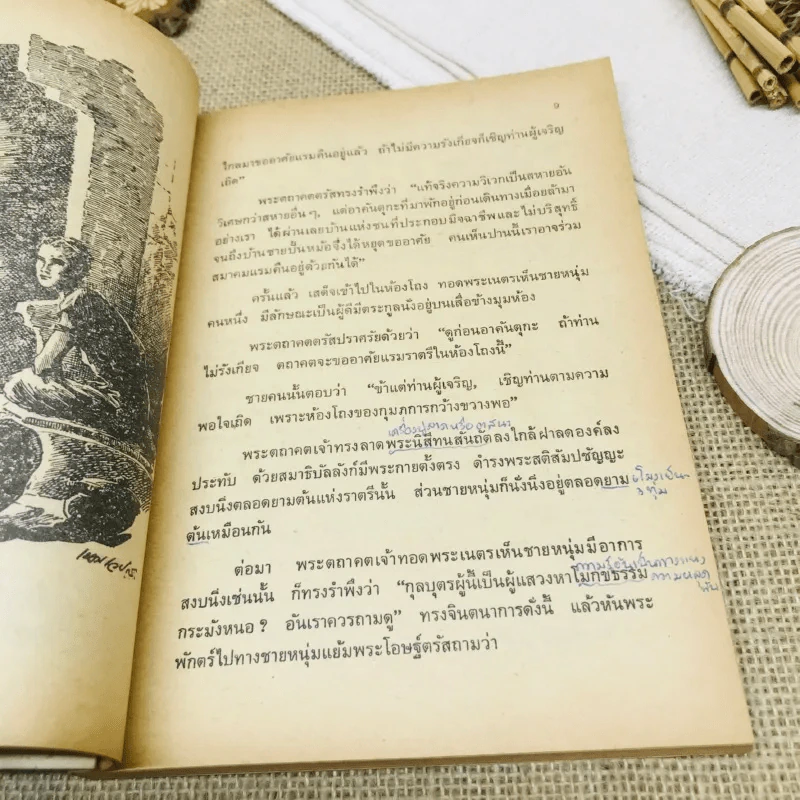 ๑
ไกลมาขออาศัยแรมคืนอยู่แล้ว ถ้าไม่มีความรังเกียจก็เชิญท่านผู้เจริญ
เถิด”
พระตถาคตตรัสทรงรำพึงว่า “แท้จริงความวิเวกเป็นสหายอัน
วิเศษกว่าสหายอื่น ๆ, แต่อาคันตุกะที่มาพักอยู่ก่อนเดินทางเมื่อยล้ามา
อย่างเรา ได้ผ่านเลยบ้านแห่งชนที่ประกอบมิจฉาชีพและไม่บริสุทธิ์
จนถึงบ้านชายปั้นหม้อจึ่งได้หยุดขออาศัย คนเห็นปานนี้เราอาจร่วม
สมาคมแรมคืนอยู่ด้วยกันได้”
ครั้นแล้ว เสด็จเข้าไปในห้องโถง ทอดพระเนตรเห็นชายหนุ่ม
คนหนึ่ง มีลักษณะเป็นผู้ดีมีตระกูลนั่งอยู่บนเสื่อข้างมุมห้อง
พระตถาคตตรัสปราศรัยด้วยว่า “ดูก่อนอาคันตุกะ ถ้าท่าน
ไม่รังเกียจ ตถาคตจะขออาศัยแรมราตรีในห้องโถงนี้”
ชายคนนั้นตอบว่า “ข้าแต่ท่านผู้เจริญ, เชิญท่านตามความ
พอใจเถิด เพราะห้องโถงของกุมภการกว้างขวางพอ”
พระตถาคตเจ้าทรงลาดพระนิสีทนสันถัตลงใกล้ฝาลดองค์ลง
ประทับ ด้วยสมาธิบัลลังก์มีพระกายตั้งตรง ดำรงพระสติสัมปชัญญะ
สงบนิ่งตลอดยามต้นแห่งราตรีนั้น ส่วนชายหนุ่มก็นั่งนิ่งอยู่ตลอดยาม
ต้นเหมือนกัน
ต่อมา พระตถาคตเจ้าทอดพระเนตรเห็นชายหนุ่มมีอาการ
สงบนิ่งเช่นนั้น ก็ทรงรำพึงว่า “กุลบุตรผู้นี้เป็นผู้แสวงหาโมกขธรรม
กระมังหนอ ? อันเราควรถามดู” ทรงจินตนาการดั่งนี้ แล้วหันพระ
พักตร์ไปทางชายหนุ่มแย้มพระโอษฐ์ตรัสถามว่า